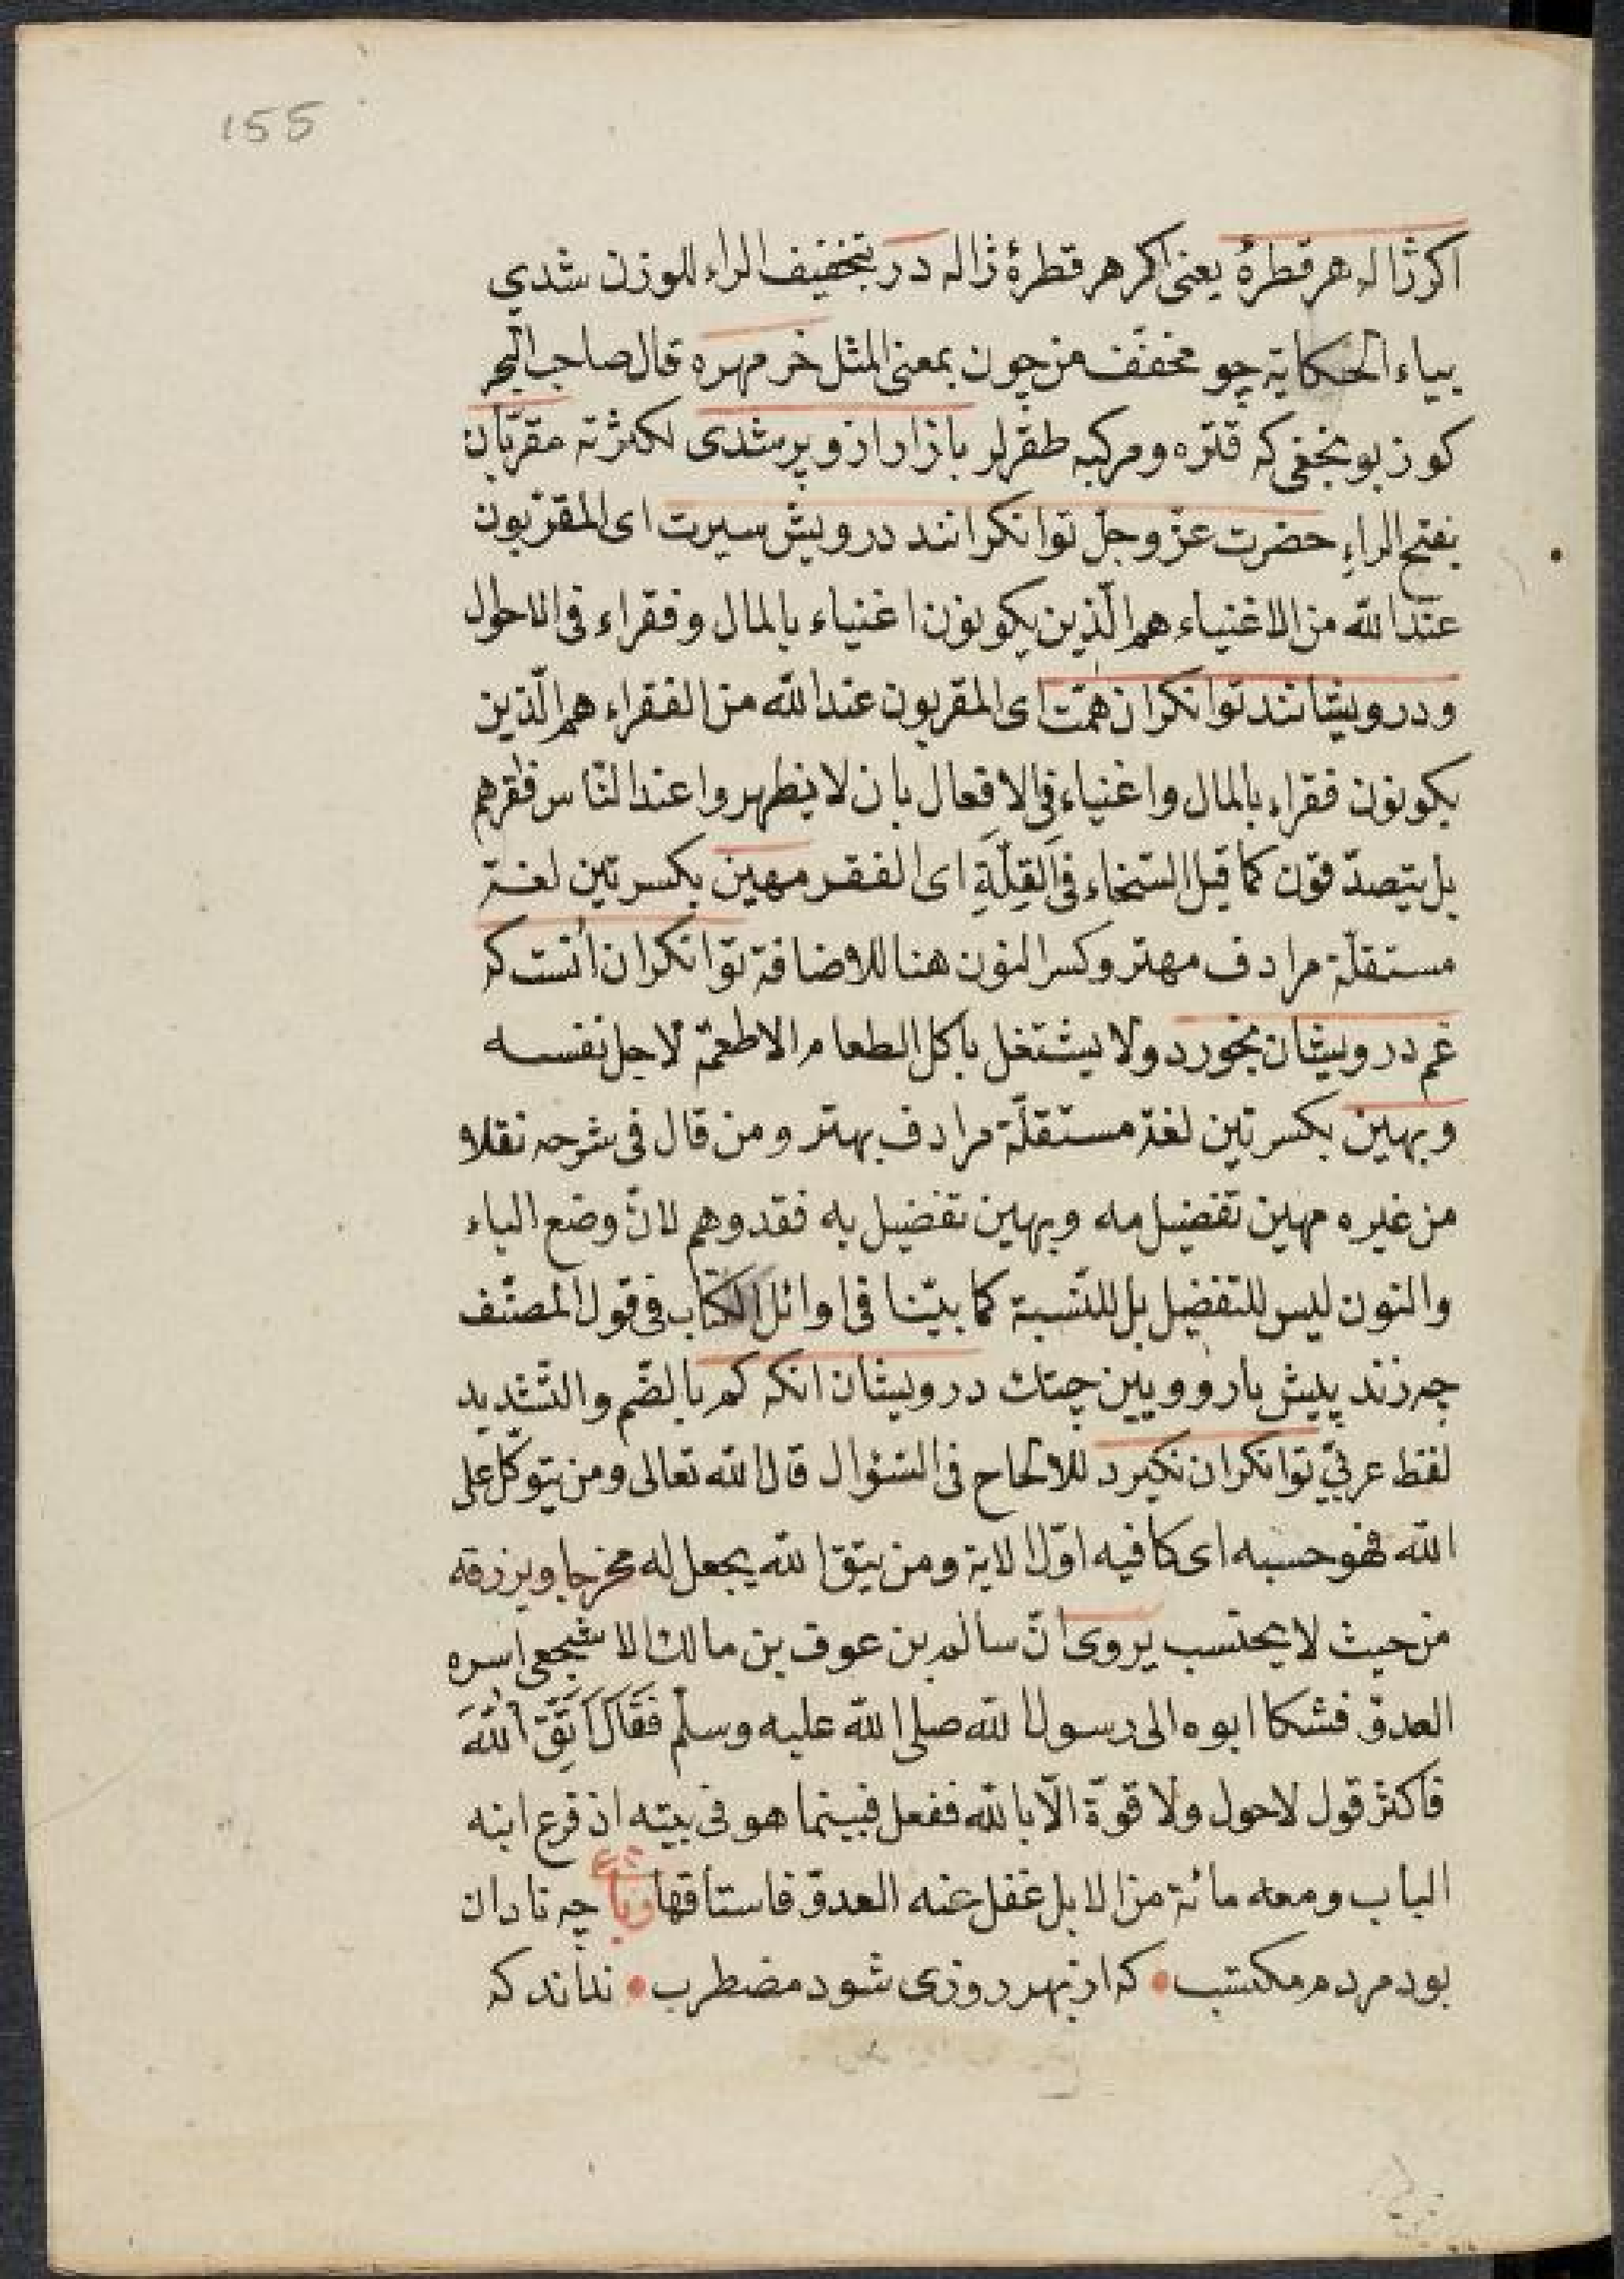 155
اكر ژاله هر قطرهٔ يعنى اكر هر قطرهٔ ژاله در بتخفيف الراء للوزن شدي
بياء الحكاية چو مخفّف من چون بمعنى المثل خر مهره قال صاحب البحر
كوز بونجغى كه قتره ومركبه طقرلر بازار ازو پر شدى لكثرته مقرّبان
بفتح الراء حضرت عزّ وجلّ توانكرانند درويش سيرت اى المقرّبون
عند الله من الاغنياء هم الّذين يكونون اغنياء بالمال وفقراء فى الاحوال
ودرويشانند توانكران همّت اى المقربون عند الله من الفقراء هم الّذين
يكونون فقراء بالمال واغنياء فى الافعال بان لا يظهروا عند النّاس فقرهم
بل يتصدّقون كما قيل السّخاء فى القِلَّةِ اى الفقر مهين بكسرتين لغة
مستقلّة مرادف مهتر وكسر النون هنا للاضافة توانكران انست كه
غم درويشان بخورد ولا يشتغل باكل الطعام والاطعمة لاجل نفسه
وبهين بكسرتين لغة مستقلّة مرادف بهتر ومن قال فى شرحه نقلا
من غيره مهين تفضيل مه وبهين تفضيل به فقد وهم لانّ وضع الياء
والنون ليس للتفضيل بل للنّسبة كما بيّنا فى اوائل الكتاب فى قول المصنّف
چه زند پيش بازوويين چنك درويشان انكه كم بالضّم والتّشديد
لفظ عربيّ توانكران نكيرد للالحاح فى السّؤال قال الله تعالى ومن يتوكّل على
الله فهو حسبه اى كافيه اوّل الاية ومن يتق الله يجعل له مخرجا ويرزقه
من حيث لا يحتسب يروى انّ سالم بن عوف بن مالك الاشجعى اسره
العدوّ فشكا ابوه الى رسول الله صلى الله عليه وسلّم فَقَالَ اتَّقِ اللهَ
فاكثر قول لا حول ولا قوّة الّا بالله ففعل فبينما هو فى بيته اذ قرع ابنه
الباب ومعه مائة من الابل غفل عنه العدوّ فاستاقها چه نادان
بود مردم مكتسب • كه از بهر روزى شود مضطرب • نداند كه